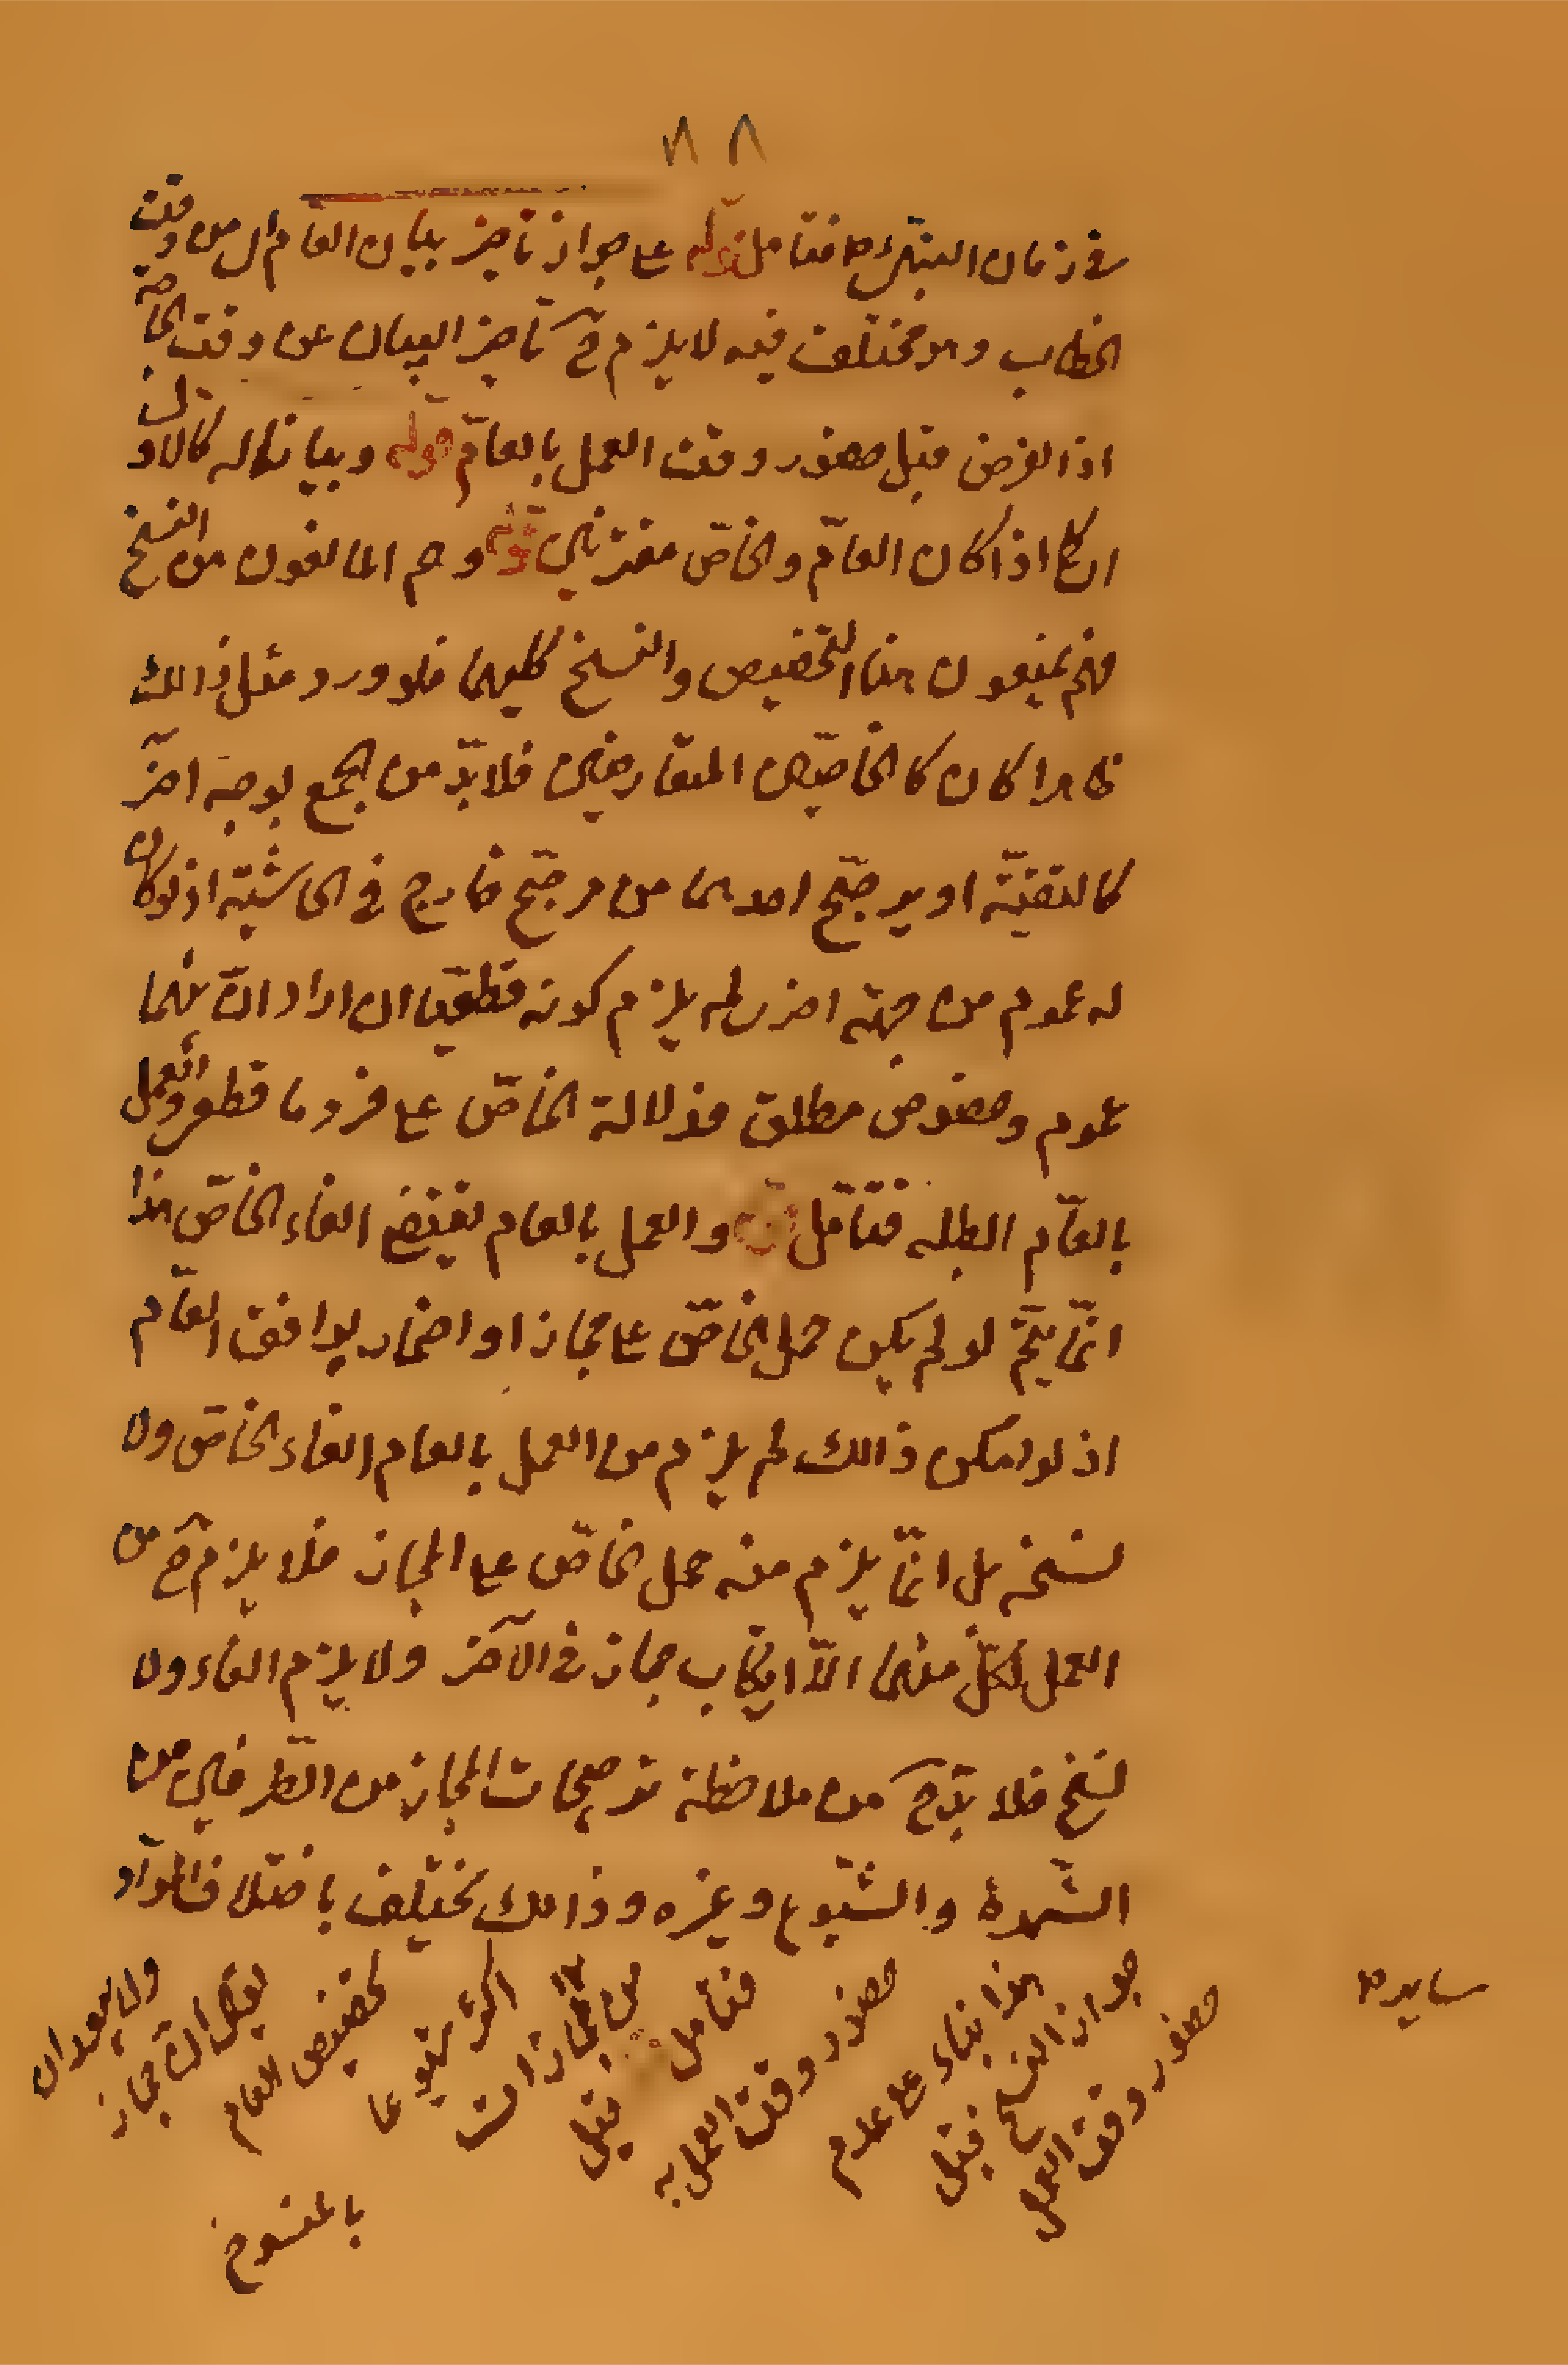 ٨٨
في زمان النبي ص فتامل قوله على جواز تاخير بيان العام الى من وقت
الخطاب وهو مختلف فيه لا يلزم ح تاخير البيان عن وقت الحاجة
اذ الفرض قبل حضور وقت العمل بالعامّ قوله وبيانا له كالاول
اى كما اذا كان العامّ والخاصّ مقترنين قوله وهم المانعون من النسخ
فهم يمنعون هنا التخصيص والنسخ كليهما فلو ورد مثل ذالك
ظاهرا كان كالخاصّين المتعارضين فلا بدّ من الجمع بوجه اخر
كالتقيّة او يرجّح احدهما من مرجّح خارج في الحاشية اذ لو كان
له عموم من جهة اخرى لم يلزم كونه قطعيّا اى اراد انّ بينهما
عموم وخصوص مطلق فدلالة الخاصّ على فرد ما قطعي والعمل
بالعامّ ابطله فتامّل قوله والعمل بالعام يقتضي الغاء الخاصّ هذا
انّما يتمّ لو لم يكن حمل الخاصّ على مجاز او اضمار يوافق العامّ
اذ لو امكن ذالك لم يلزم من العمل بالعام الغاء الخاصّ ولا
نسخه بل انّما يلزم منه حمل الخاصّ على المجاز فلا يلزم ح من
العمل بكلّ منهما الّا ارتكاب مجاز في الآخر ولا يلزم الغاء ولا
نسخ فلا بدّ ح من ملاحظة ترجيحات المجاز من الطّرفين من
الشّهرة والشّيوع وغيره وذالك يختلف باختلاف الموادّ
ولا يبعد ان
يقال انّ مجاز
تخصيص العام
اكثر شيوعا
من المجازات
فتامل قوله قبل
حضور وقت العمل به
هذا بناء على عدم
جواز النسخ قبل
حضور وقت العمل
بالمنسوخ